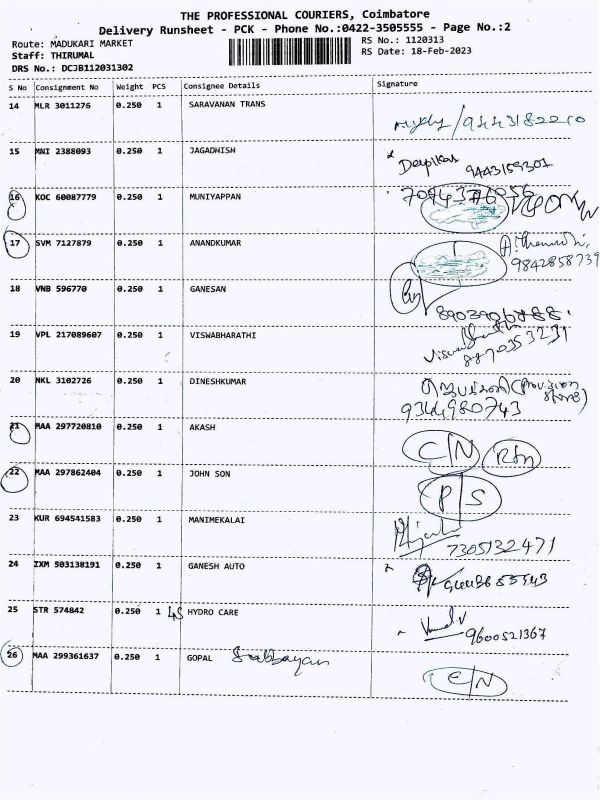 THE PROFESSIONAL COURIERS, Coimbatore
Delivery Runsheet - PCK - Phone No.:0422-3505555 - Page No.:2
Route: MADUKARI MARKET
Staff: THIRUMAL
DRS No.: DCJB112031302
RS No.: 1120313
RS Date: 18-Feb-2023
S No Consignment No Weight PCS Consignee Details Signature
14 MLR 3011276 0.250 1 SARAVANAN TRANS
15 MNI 2388093 0.250 1 JAGADHISH Deepika 9443159307
16 KOC 60087779 0.250 1 MUNIYAPPAN
17 SVM 7127879 0.250 1 ANANDKUMAR
9842858739
18 VNB 596770 0.250 1 GANESAN
19 VPL 217089607 0.250 1 VISWABHARATHI
8870353231
20 NKL 3102726 0.250 1 DINESHKUMAR (Provision Store)
9344980743
21 MAA 297720810 0.250 1 AKASH C/N Rtn
22 MAA 297862404 0.250 1 JOHN SON P/S
23 KUR 694541583 0.250 1 MANIMEKALAI
7305132471
24 IXM 503138191 0.250 1 GANESH AUTO
25 STR 574842 0.250 1 HYDRO CARE
9600521367
26 MAA 299361637 0.250 1 GOPAL Subbayan C/N